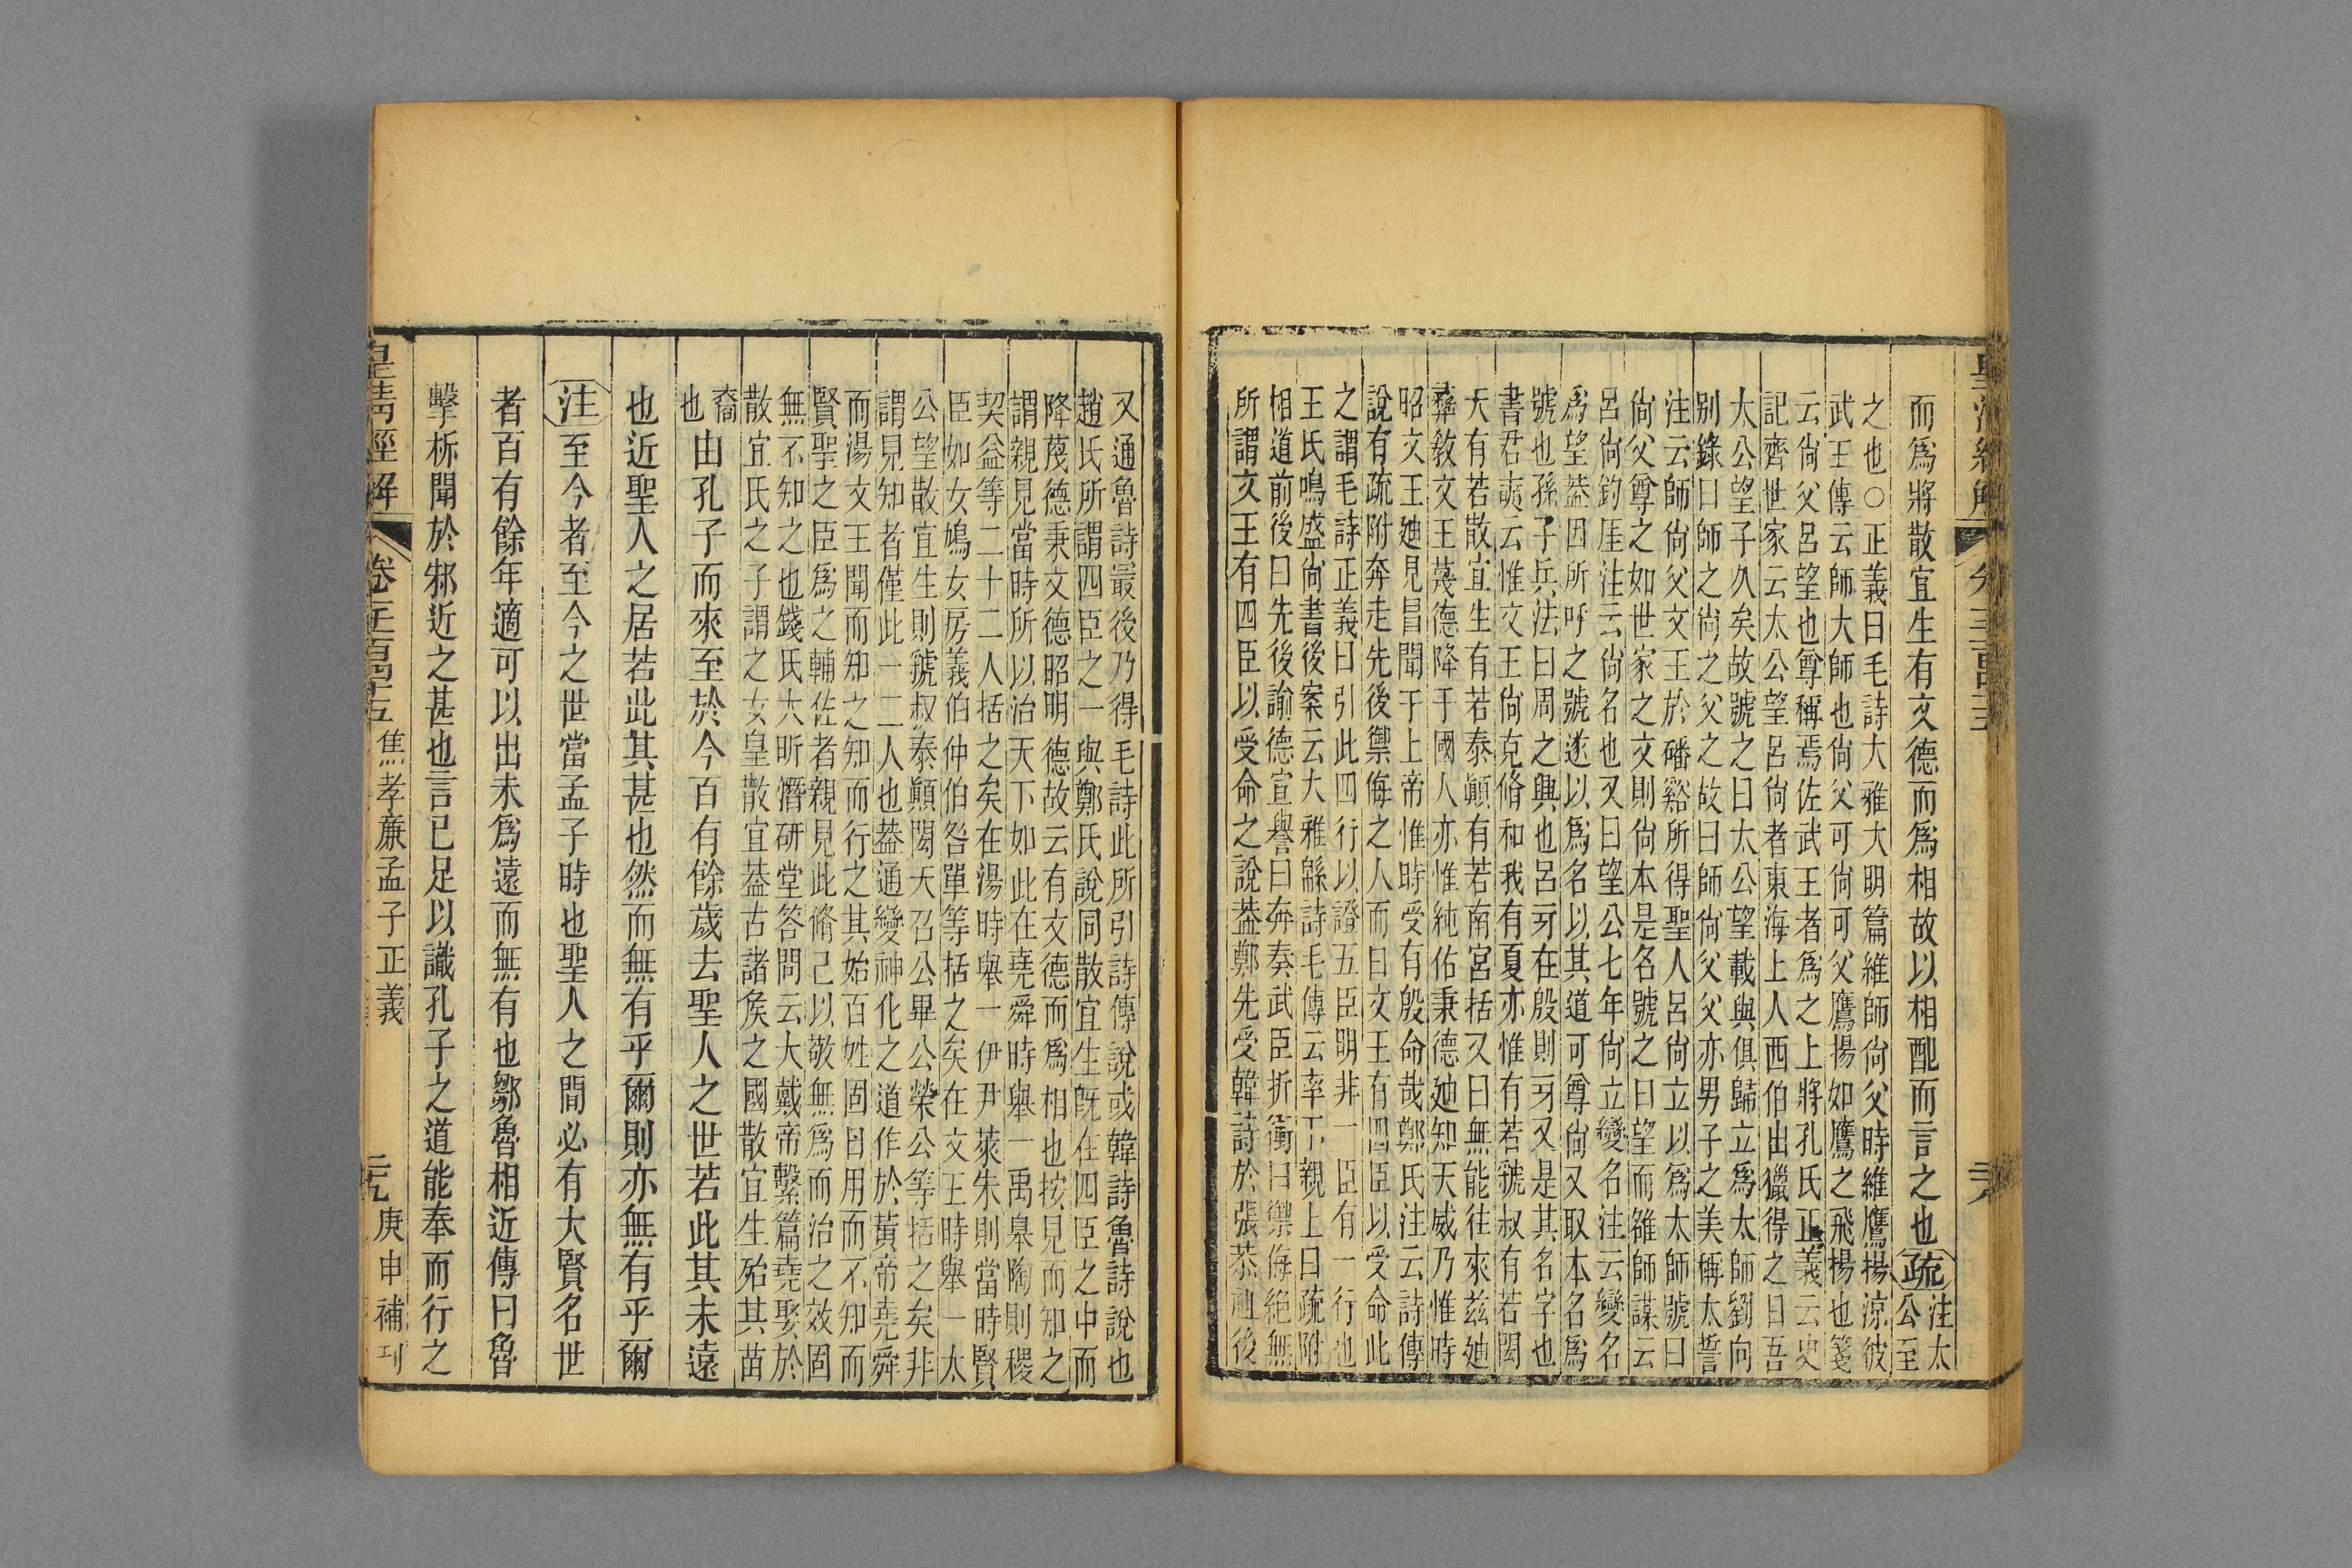 皇清經解
卷五百四十五
而爲將散宜生有文德而爲相故以相配而言之也疏注太
公至
之也○正義曰毛詩大雅大明篇維師尙父時維鷹揚涼彼
武王傳云師大師也尙父可尙可父鷹揚如鷹之飛揚也箋
云尙父呂望也尊稱焉佐武王者爲之上將孔氏正義云史
記齊世家云太公望呂尙者東海上人西伯出獵得之曰吾
太公望子久矣故號之曰太公望載與俱歸立爲太師劉向
别錄曰師之尙之父之故曰師尙父父亦男子之美稱太誓
注云師尙父文王於磻谿所得聖人呂尙立以爲太師號曰
尙父尊之如世家之文則尙本是名號之曰望而雒師謀云
呂尙釣厓注云尙名也又曰望公七年尙立變名注云變名
爲望葢因所呼之號遂以爲名以其道可尊尙又取本名爲
號也孫子兵法曰周之興也呂牙在殷則牙又是其名字也
書君奭云惟文王尙克脩和我有夏亦惟有若虢叔有若閎
夭有若散宜生有若泰顚有若南宮括又曰無能往來茲廸
彝敎文王蔑德降于國人亦惟純佑秉德廸知天威乃惟時
昭文王廸見冒聞于上帝惟時受有殷命哉鄭氏注云詩傳
說有疏附奔走先後禦侮之人而曰文王有四臣以受命此
之謂毛詩正義曰引此四行以證五臣明非一臣有一行也
王氏鳴盛尙書後案云大雅緜詩毛傳云率下親上曰疏附
相道前後曰先後諭德宣譽曰奔奏武臣折衝曰禦侮絶無
所謂文王有四臣以受命之說葢鄭先受韓詩於張恭祖後
又通魯詩最後乃得毛詩此所引詩傳說或韓詩魯詩說也
趙氏所謂四臣之一與鄭氏說同散宜生旣在四臣之中而
降蔑德秉文德昭明德故云有文德而爲相也按見而知之
謂親見當時所以治天下如此在堯舜時舉一禹皋陶則稷
契益等二十二人括之矣在湯時舉一伊尹萊朱則當時賢
臣如女鳩女房義伯仲伯咎單等括之矣在文王時舉一太
公望散宜生則虢叔泰顚閎夭召公畢公榮公等括之矣非
謂見知者僅此一二人也葢通變神化之道作於黃帝堯舜
而湯文王聞而知之知而行之其始百姓固日用而不知而
賢聖之臣爲之輔佐者親見此脩己以敬無爲而治之效固
無不知之也錢氏大昕潛研堂答問云大戴帝繫篇堯娶於
散宜氏之子謂之女皇散宜葢古諸矦之國散宜生殆其苗
裔
也由孔子而來至於今百有餘歲去聖人之世若此其未遠
也近聖人之居若此其甚也然而無有乎爾則亦無有乎爾
注至今者至今之世當孟子時也聖人之間必有大賢名世
者百有餘年適可以出未爲遠而無有也鄒魯相近傳曰魯
擊柝聞於邾近之甚也言已足以識孔子之道能奉而行之
皇淸經解
卷五百四十五
焦孝廉孟子正義
庚申補刊